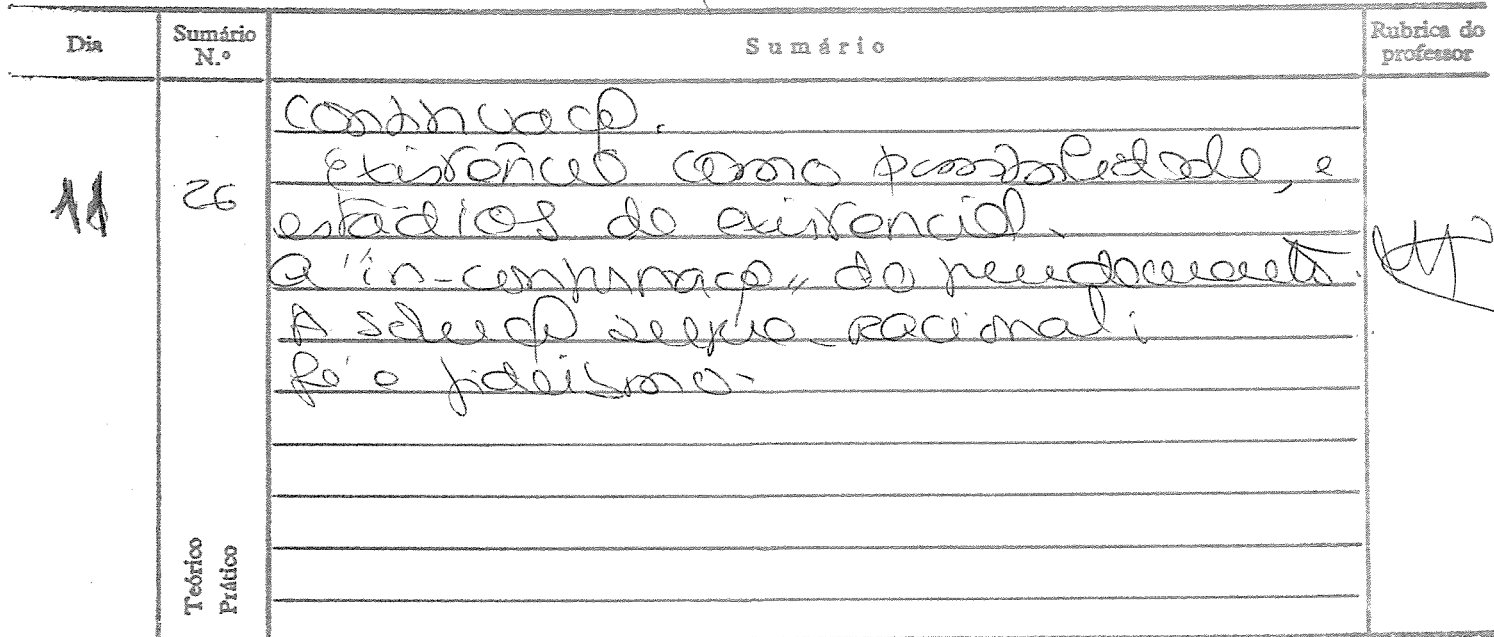 Dia Sumário N.º Sumário Rubrica do professor
Continuação.
11 26 Existência como possibilidade, e
estádios do existencial.
A "in-conformação" do
A solução - racional;
fé e fideísmo.
Teórico
Prático